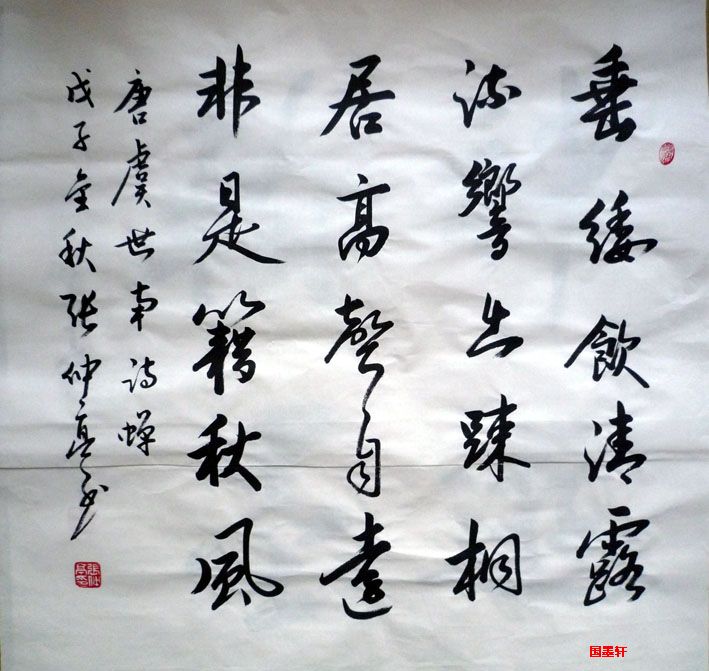 垂緌飲清露
流響出踈桐
居高聲自遠
非是籍秋風
唐虞世南詩蟬
戊子金秋張仲亭書
国墨轩